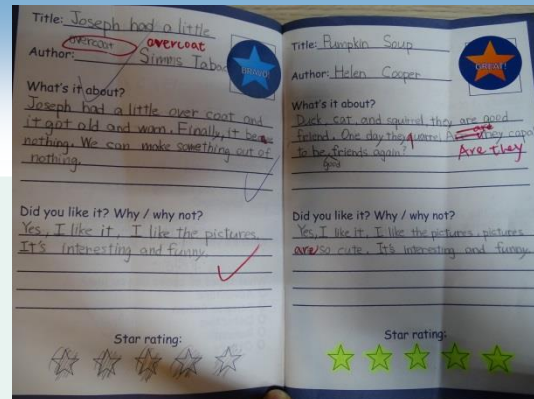 Title: Joseph had a little
overcoat overcoat
Author: Simms Taba
BRAVO!
What's it about?
Joseph had a little over coat and
it got old and worn. Finally, it be
nothing. We can make something out of
nothing.
Did you like it? Why / why not?
Yes, I like it, I like the pictures.
It's interesting and funny.
Star rating:
Title: Pumpkin Soup
Author: Helen Cooper
GREAT!
What's it about?
Duck, cat, and squirrel, they are good
friend. One day they Are they
to be friends again?
good
Are they
Did you like it? Why / why not?
Yes, I like it, I like the pictures, pictures
are so cute. It's interesting and funny.
Star rating: